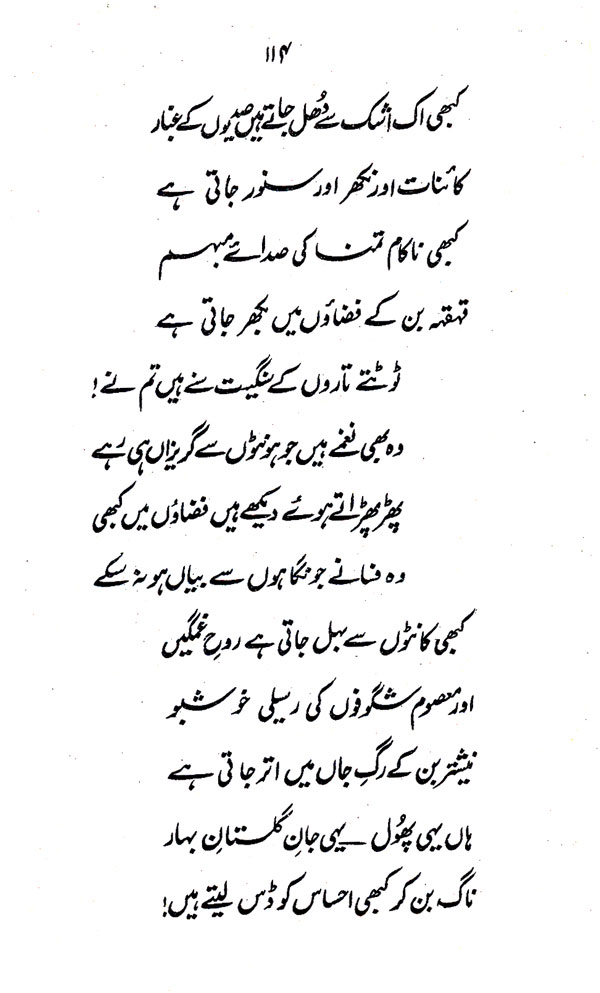 ۱۱۴
کبھی اک اشک سے دُھل جاتے ہیں صدیوں کے غبار
کائنات اور نکھر اور سنور جاتی ہے
کبھی ناکام تمنا کی صدائے مبہم
قہقہہ بن کے فضاؤں میں بکھر جاتی ہے
ٹوٹتے تاروں کے سنگیت سنے ہیں تم نے!
وہ بھی نغمے ہیں جو ہونٹوں سے گریزاں ہی رہے
پھڑپھڑاتے ہوئے دیکھے ہیں فضاؤں میں کبھی
وہ فسانے جو نگاہوں سے بیاں ہو نہ سکے
کبھی کانٹوں سے بہل جاتی ہے روحِ غمگیں
اور معصوم شگوفوں کی رسیلی خوشبو
نیشتر بن کے رگِ جاں میں اتر جاتی ہے
ہاں یہی پھُول ـــ یہی جانِ گلستانِ بہار
ناگ بن کر کبھی احساس کو ڈس لیتے ہیں!